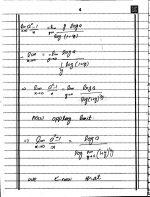 4
lim a^x-1 / x = lim y log a / log(1+y)
⇒ lim x→0 = lim y→0 log a / 1/y log(1+y)
⇒ lim x→0 a^x-1 / x = lim y→0 log a / log(1+y)^1/y
Now applying limit
⇒ lim x→0 a^x-1 / x = log a / log lim y→0 (1+y)^1/y
we know that